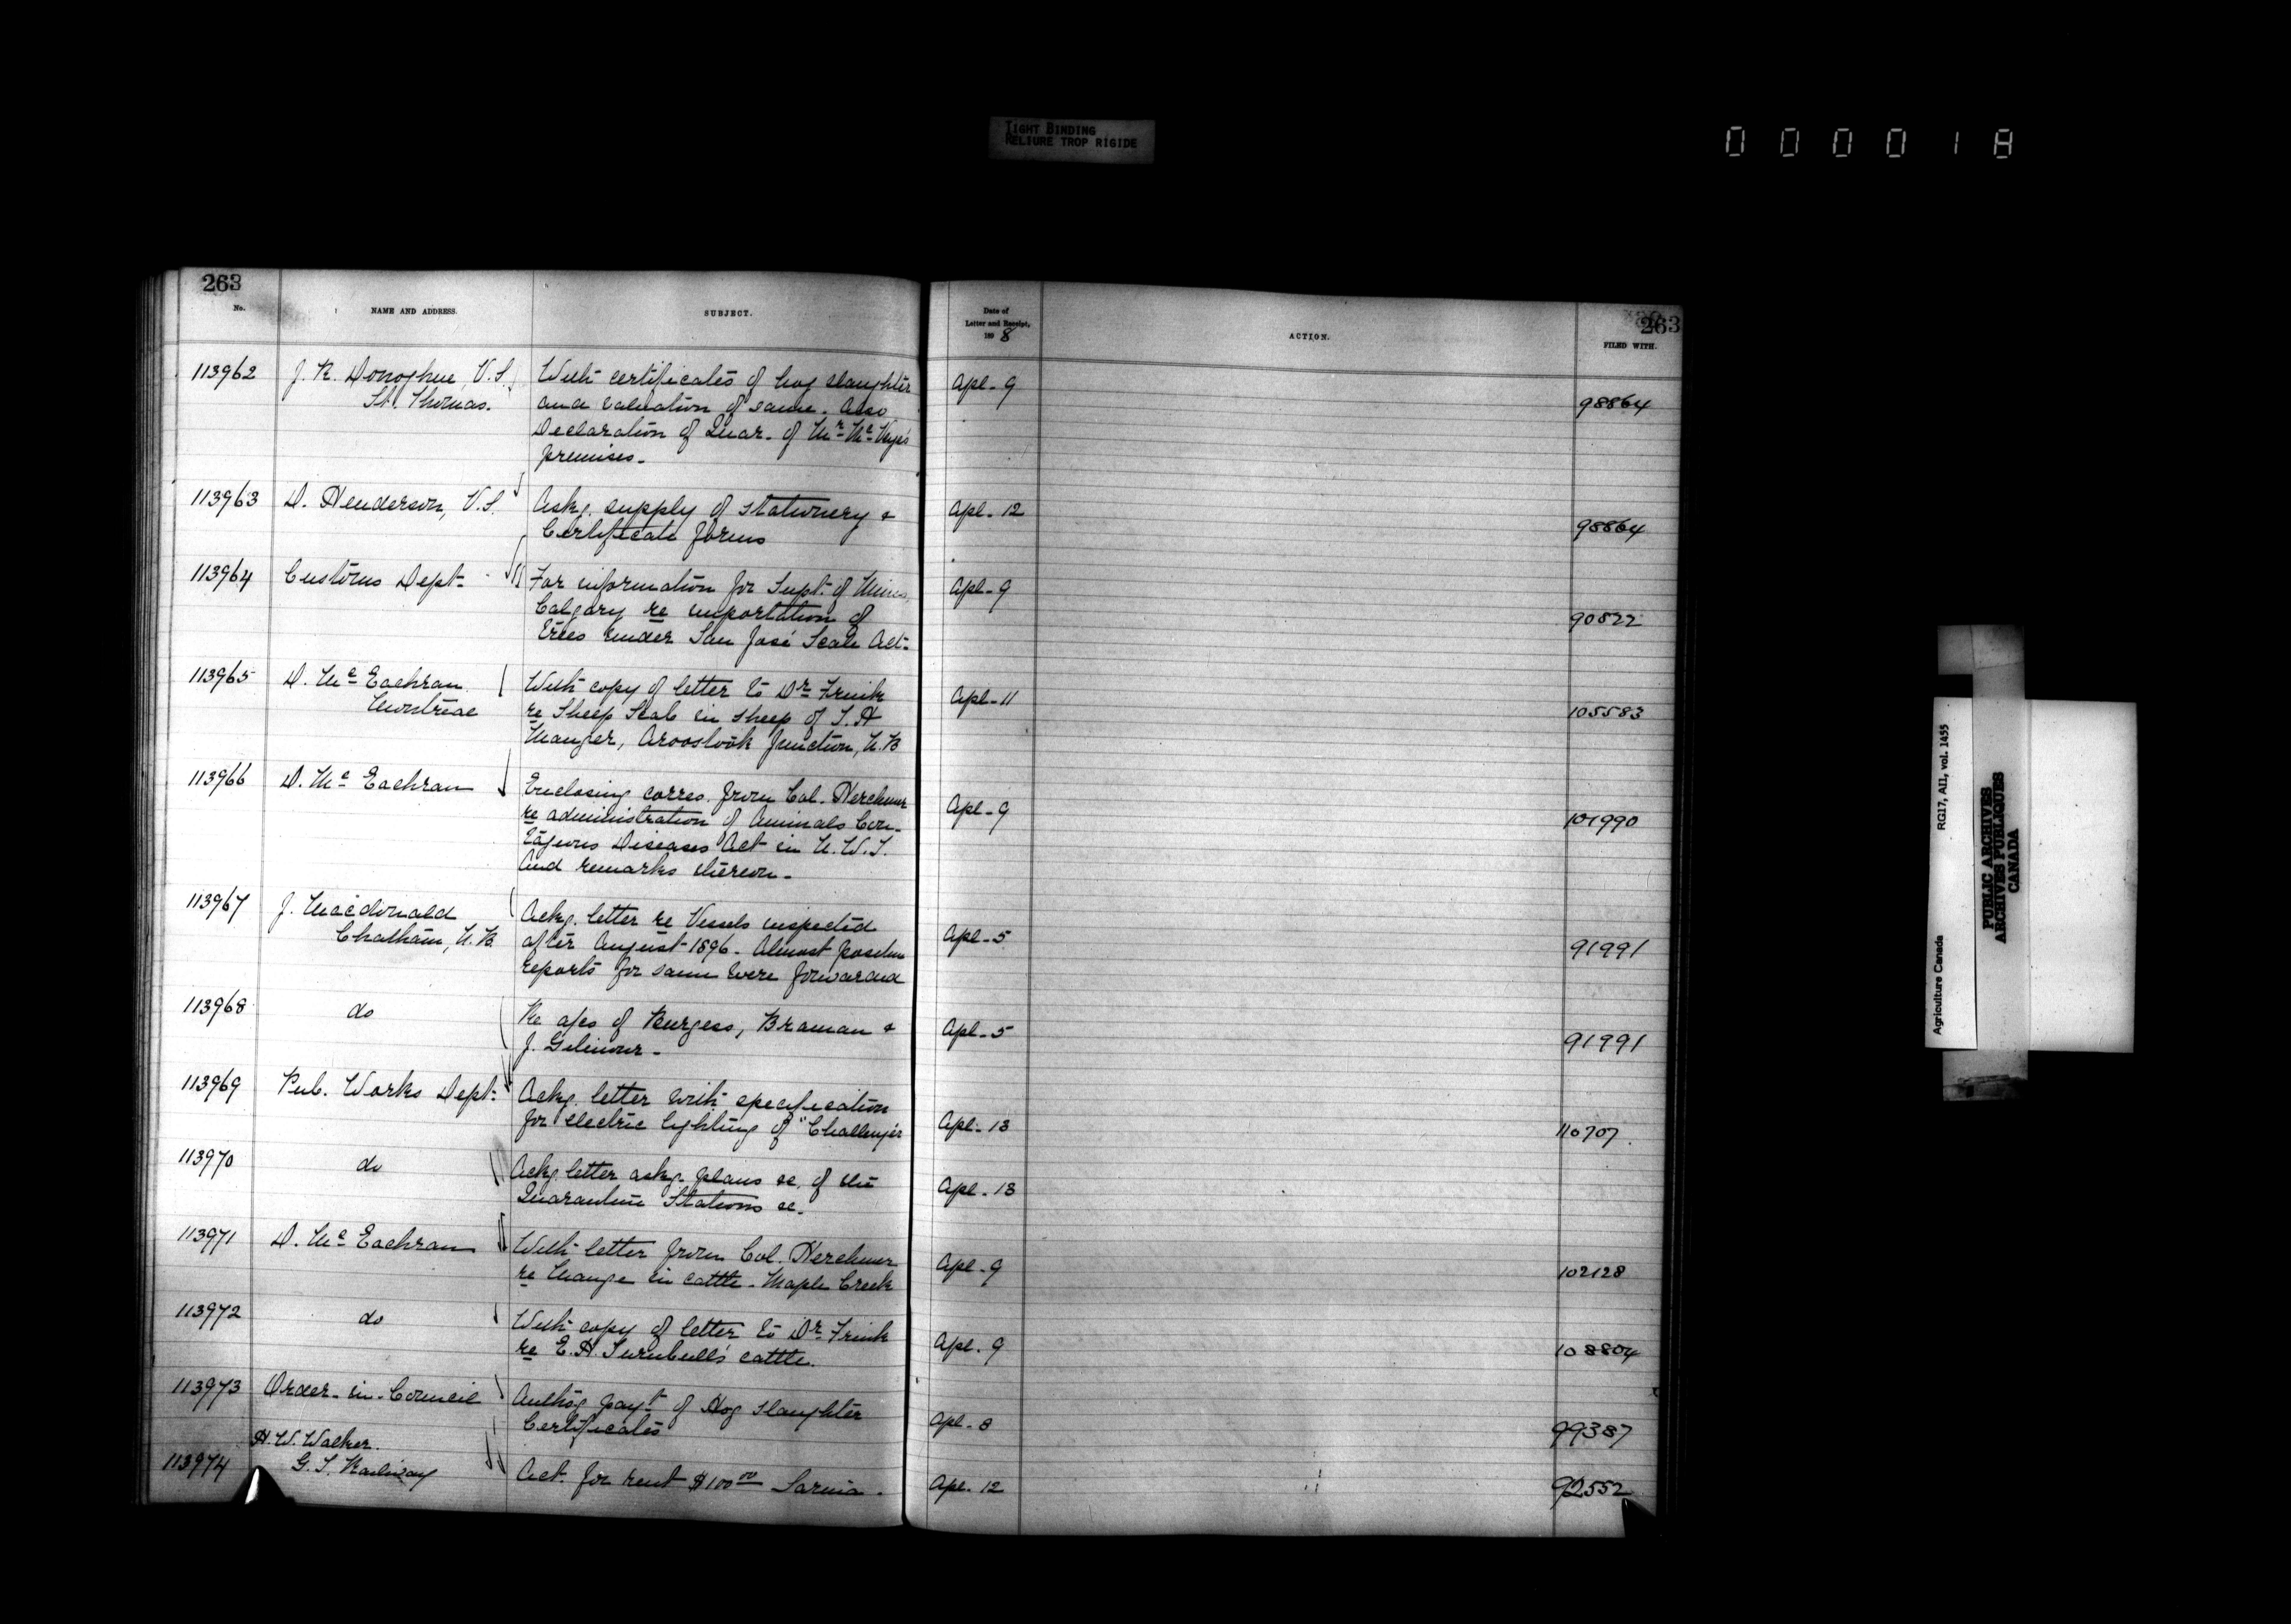 TIGHT BINDING
RELIURE TROP RIGIDE
000018
263
No.
NAME AND ADDRESS.
SUBJECT.
Date of
Letter and Receipt,
1898
ACTION.
263
FILED WITH.
113962
J. R. Donoghue, V.S.
St. Thomas.
With certificates of hog slaughter
and valuation of same. Also
Declaration of Quar. of Mr. Mc
premises.
Apl. 9
98864
113963
D. Henderson, V.S.
Askg. supply of stationery &
Certificate forms
Apl. 12
98864
113964
Customs Dept.
For information for Supt. of Mines
Calgary re importation of
trees under San José Scale Act.
Apl. 9
90822
113965
D. McEachran
Montreal
With copy of letter to Dr. Frink
re Sheep Scab in sheep of S. H
Manzer, Aroostook Junction, N.B
Apl. 11
105583
113966
D. McEachran
Enclosing corres. from Col. Herchmer
re administration of Animals Con-
tagious Diseases Act in N.W.T.
And remarks thereon.
Apl. 9
101990
113967
J. Macdonald
Chatham, N.B.
Ackg. letter re Vessels inspected
after August 1896. Almost positive
reports for same were forwarded
Apl. 5
91991
113968
do
Re a/cs of Burgess, Braman &
J. Gilmour.
Apl. 5
91991
113969
Pub. Works Dept.
Ackg. letter with specification
for electric lighting of "Challenger
Apl. 13
110707.
113970
do
Ackg. letter askg. plans &c. of the
Quarantine Stations &c.
Apl. 13
113971
D. McEachran
With letter from Col. Herchmer
re Mange in cattle. Maple Creek
Apl. 9
102128
113972
do
With copy of letter to Dr. Frink
re E. H. Turnbull's cattle.
Apl. 9
108804
113973
Order-in-Council
Authog. payt. of Hog slaughter
Certificates
Apl. 8
99387
H. W. Walker.
113974
G. T. Railway
Act. for rent $100.00 Sarnia.
Apl. 12
92552
Agriculture Canada
RG17, AII, vol. 1455
PUBLIC ARCHIVES
ARCHIVES PUBLIQUES
CANADA